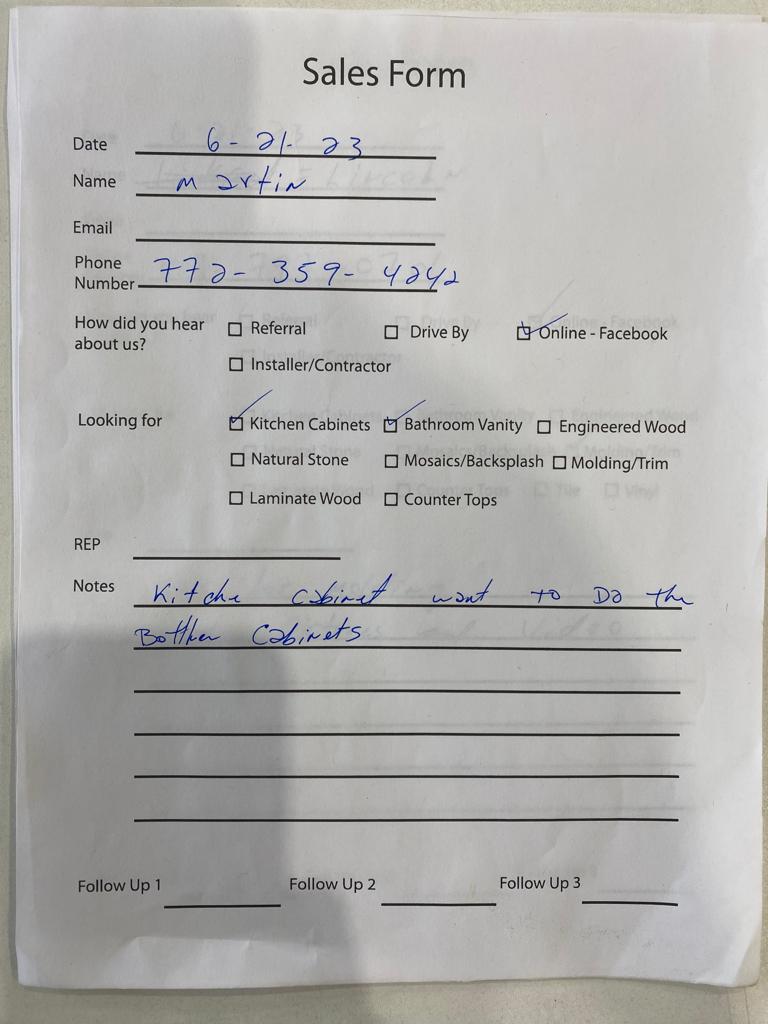 Sales Form
Date 6-21-23
Name Martin
Email
Phone
Number 772-359-4242
How did you hear about us? ☐ Referral ☐ Drive By ☑ Online - Facebook
☐ Installer/Contractor
Looking for ☑ Kitchen Cabinets ☑ Bathroom Vanity ☐ Engineered Wood
☐ Natural Stone ☐ Mosaics/Backsplash ☐ Molding/Trim
☐ Laminate Wood ☐ Counter Tops
REP
Notes Kitche Cabinet want to Do the
Botthen Cabinets
Follow Up 1 Follow Up 2 Follow Up 3